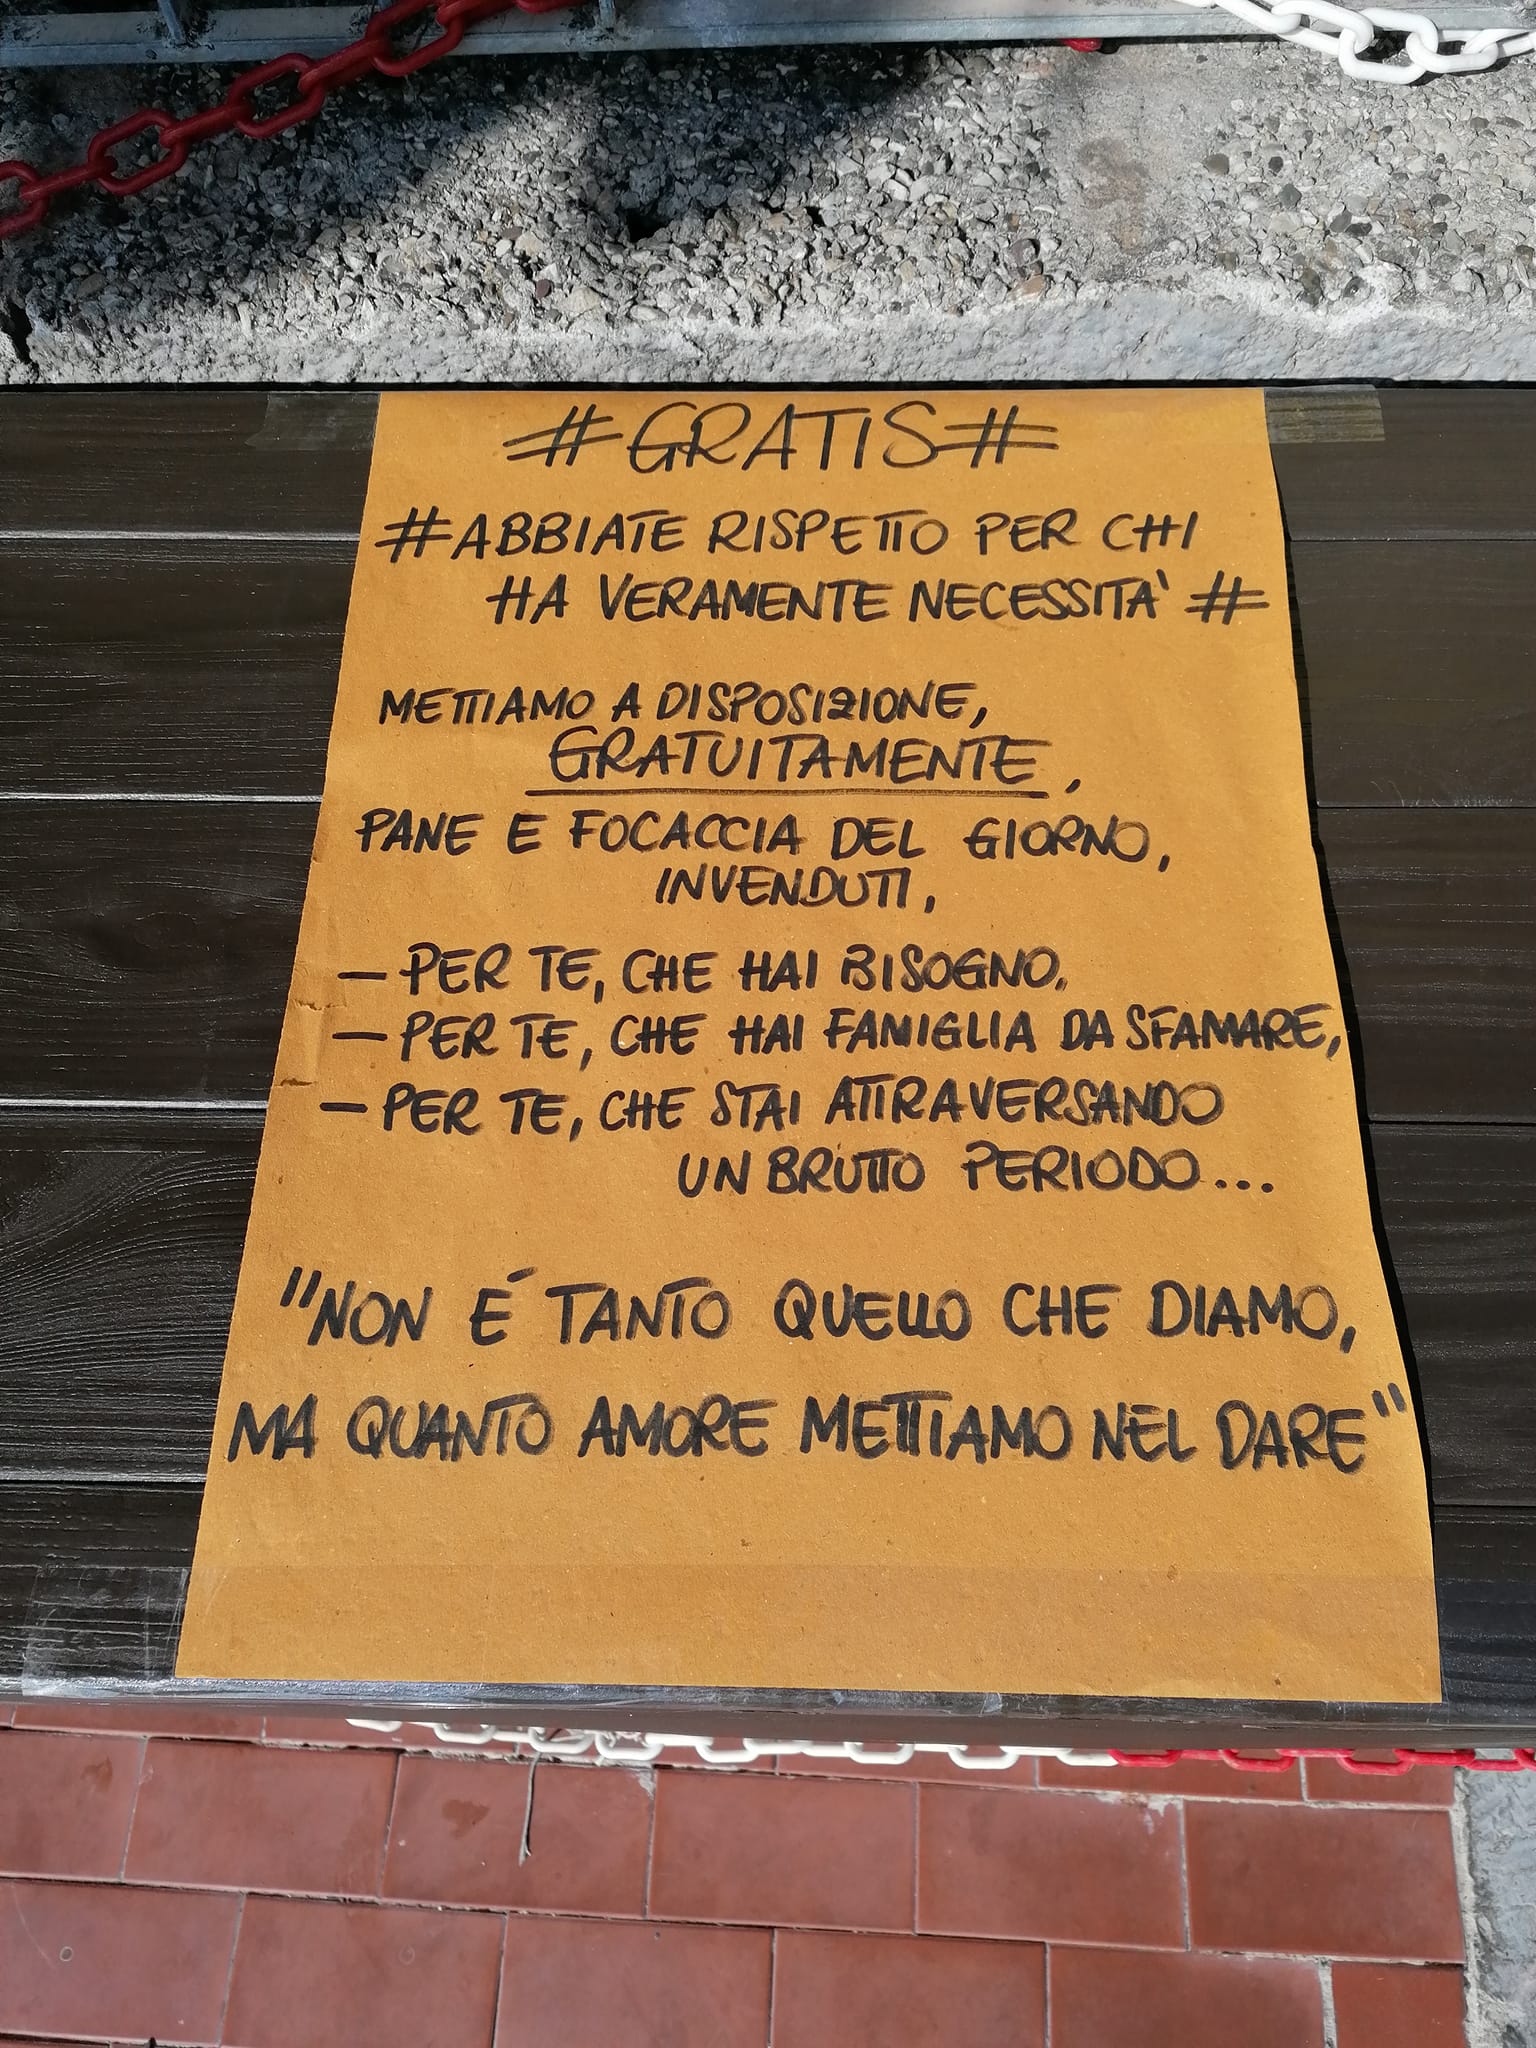 #GRATIS#
#ABBIATE RISPETTO PER CHI
HA VERAMENTE NECESSITA' #
METTIAMO A DISPOSIZIONE,
GRATUITAMENTE,
PANE E FOCACCIA DEL GIORNO,
INVENDUTI,
- PER TE, CHE HAI BISOGNO,
- PER TE, CHE HAI FAMIGLIA DA SFAMARE,
- PER TE, CHE STAI ATTRAVERSANDO
UN BRUTTO PERIODO...
"NON É TANTO QUELLO CHE DIAMO,
MA QUANTO AMORE METTIAMO NEL DARE"